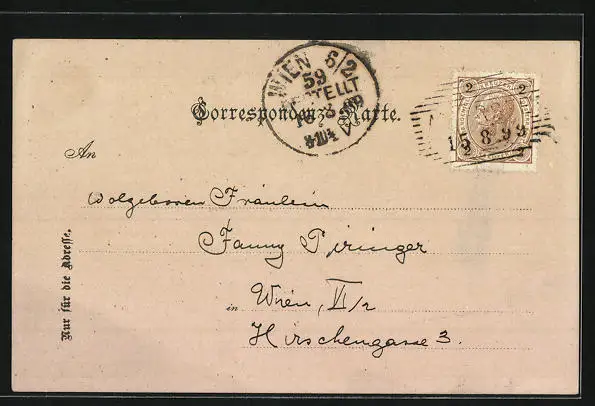 WIEN 6/2
59
BESTELLT
Correspondenz-Karte.
2 2
15 8.99
2 2
An
Wolgeboren Fräulein
Fanny Piringer
in Wien, VI/2
Hirschengasse 3.
Nur für die Adresse.